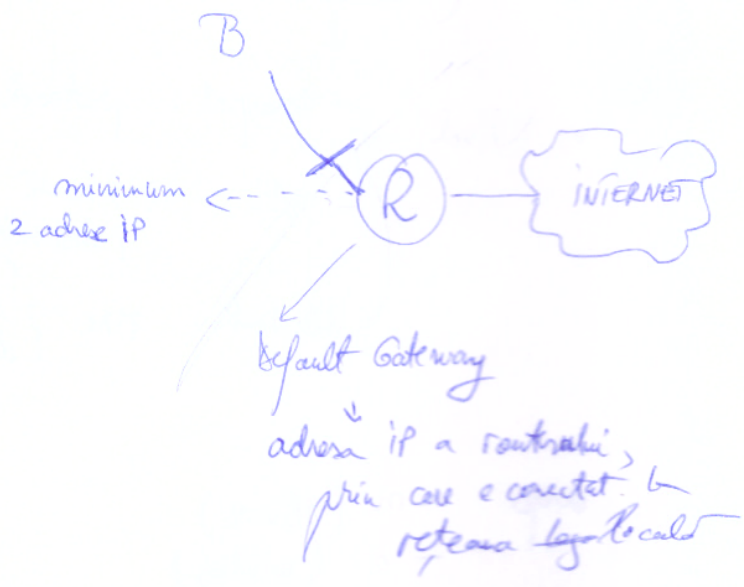 B
R
INTERNET
minimum
2 adrese IP
Default Gateway
adresa IP a routerului,
prin care e conectat la
rețeaua locală